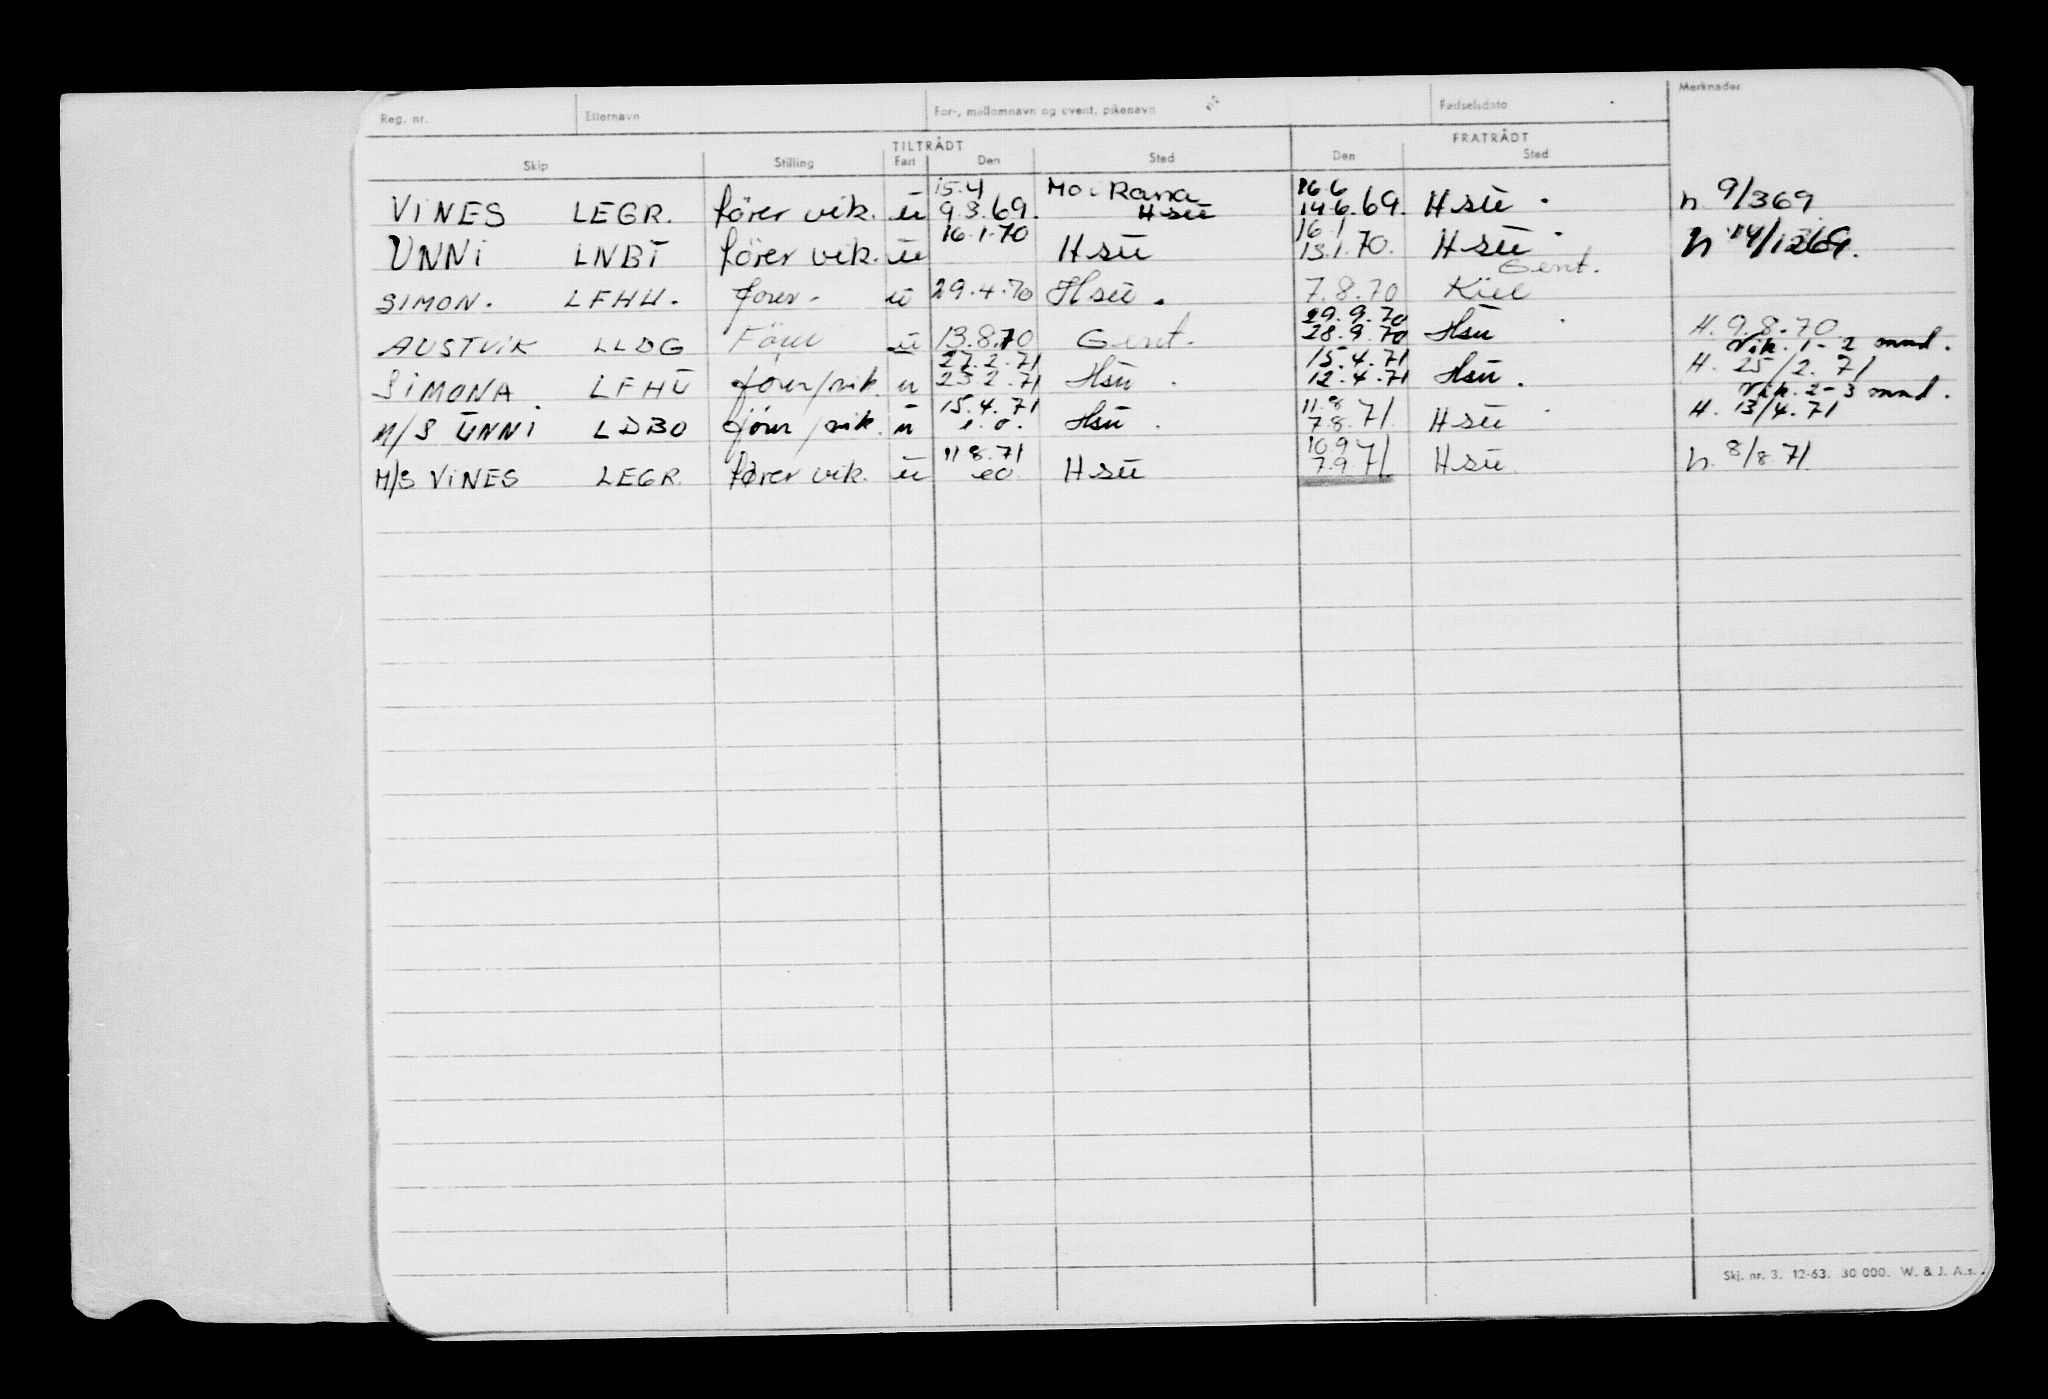 Reg. nr. Etternavn For-, mellomnavn og event. pikenavn Fødselsdato Merknader
TILTRÅDT FRATRÅDT
Skip Stilling Fart Den Sted Den Sted
15.4 Mo i Rana 16.6
VINES LEGR. förer vik. ū 9.3.69. Hsū 14.6.69. Hsū. n. 9/3 69
16.1.70 16.1
UNNI LNBI förer vik. ū Hsū 13.1.70. Hsū n 14/1269.
Gent.
SIMON. LFHU. förer. ū 29.4.70 Hsū. 7.8.70 Kiel
29.9.70
AUSTVIK LLDG Förer ū 13.8.70 Gent. 28.9.70 Hsū H. 9.8.70
27.2.71 15.4.71 Vik. 1-2 mnd.
SIMONA LFHU förer/vik. ū 25.2.71 Hsū. 12.4.71 Hsū. H. 25/2.71
15.4.71 11.8 Vik. 2-3 mnd.
M/S UNNI LDBO förer/vik. ū e.o. Hsū. 7.8.71. Hsū H. 13/4.71
11.8.71 10.9
M/S VINES LEGR fører vik. ū eo. Hsū 7.9.71 Hsū. n. 8/8.71.
Skj. nr. 3. 12-63. 30 000. W. & J. A.s.